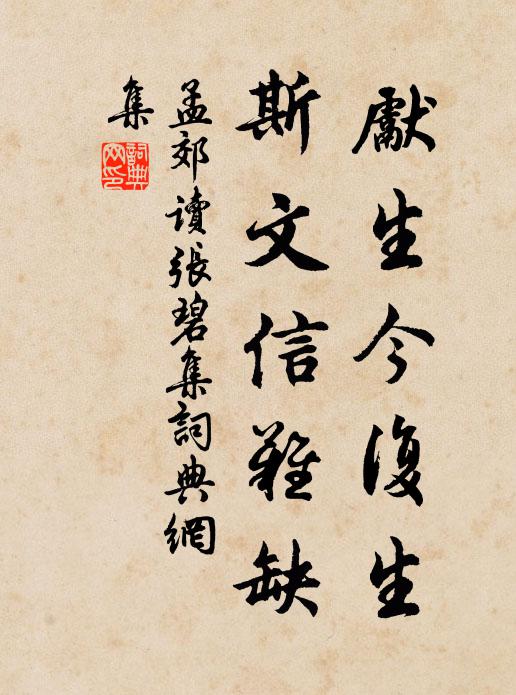 獻生今復生
斯文信難缺
孟郊讀張碧集詞典網
集
詞典
网印